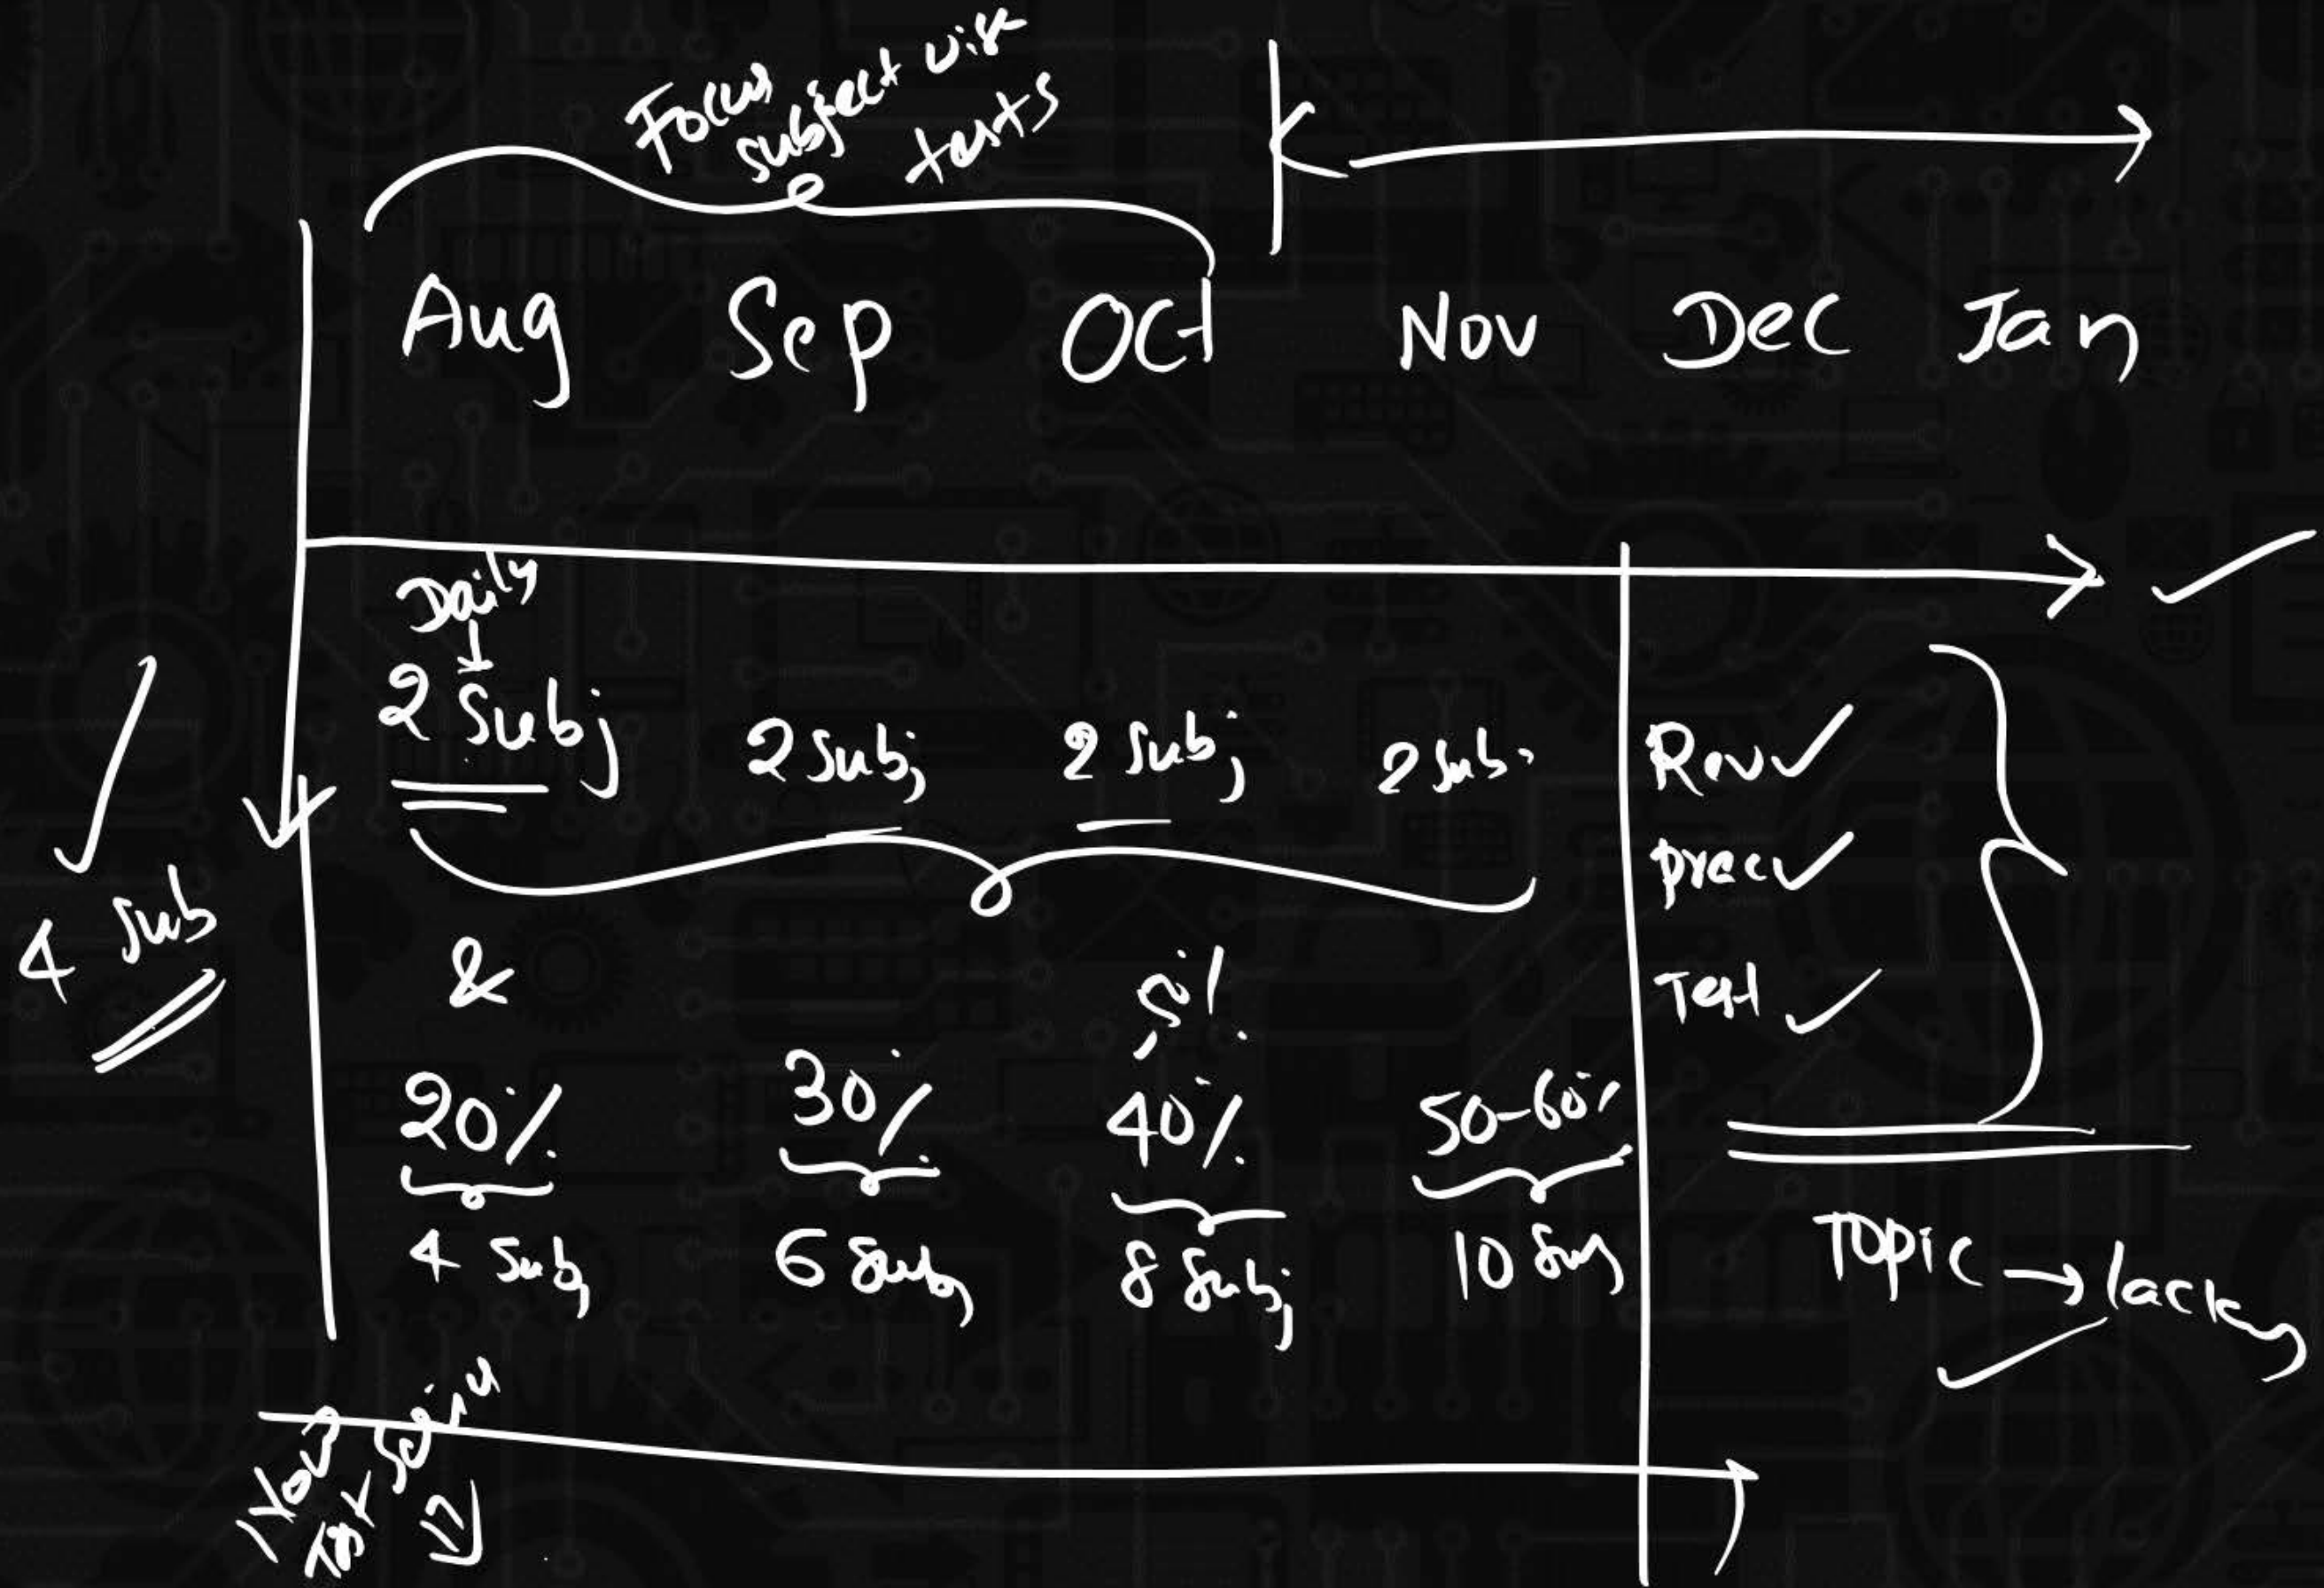 Focus
subject wise
tests
Aug Sep Oct Nov Dec Jan
Daily
2 Subj 2 Subj 2 Subj 2 Sub.
Rev
prac
Test
4 Sub
&
20% 30% 40% 50-60%
4 Subj 6 Subj 8 Subj 10 Subj
Topic → lacking
Test Series